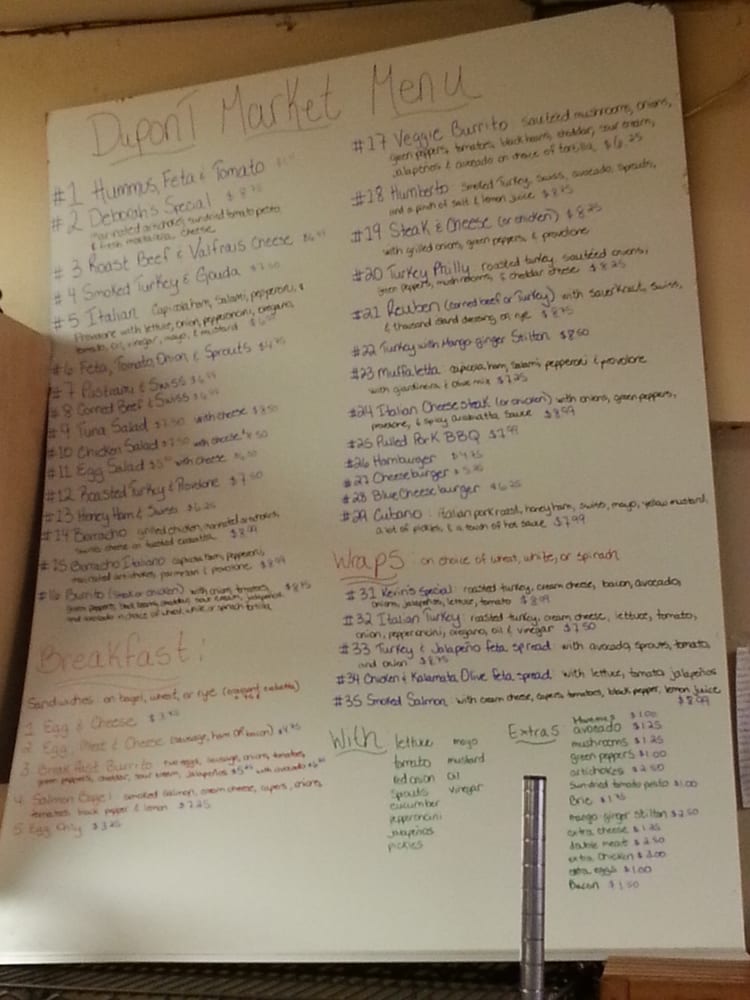 Dupont Market Menu
#1 Hummus, Feta & Tomato
#2 Deborah's Special $8.75
marinated artichokes, sundried tomato pesto
& fresh mozzarella cheese
#3 Roast Beef & Valfrais Cheese
#4 Smoked Turkey & Gouda $7.50
#5 Italian Capicola ham, Salami, pepperoni, &
Provolone with lettuce, onion, pepperoncini, oregano,
tomato, oil, vinegar, mayo, & mustard
#6 Feta, Tomato, Onion & Sprouts
#7 Pastrami & Swiss
#8 Corned Beef & Swiss
#9 Tuna Salad $7.50 with cheese $8.50
#10 Chicken Salad $7.50 with cheese $8.50
#11 Egg Salad with cheese
#12 Roasted Turkey & Provolone $7.50
#13 Honey Ham & Swiss $6.25
#14 Borracho grilled chicken, marinated artichokes,
swiss cheese on toasted ciabatta $8.99
#15 Borracho Italiano capicola ham, pepperoni,
marinated artichokes, parmesan & provolone $8.99
#16 Burrito (Steak or chicken) with onion, tomatoes, $8.75
green peppers, black beans, cheddar, sour cream, jalapenos
and avocado on choice of wheat, white or spinach tortilla
Breakfast:
Sandwiches: on bagel, wheat, or rye
1. Egg & Cheese
2. Egg, Meat & Cheese (sausage, ham or bacon)
3. Breakfast Burrito: two eggs, sausage, onions, tomatoes,
green peppers, cheddar, sour cream, jalapeños with avocado
4. Salmon Bagel: smoked salmon, cream cheese, capers, onions,
tomatoes, black pepper & lemon $7.25
5. Egg Only $3.25
#17 Veggie Burrito sautéed mushrooms, onions,
green peppers, tomatoes, black beans, cheddar, sour cream,
jalapeños & avocado on choice of tortilla $6.25
#18 Humberto Smoked Turkey, Swiss, avocado, sprouts,
and a pinch of salt & lemon juice $8.75
#19 Steak & Cheese (or chicken) $8.25
with grilled onions, green peppers, & provolone
#20 Turkey Philly roasted turkey, sautéed onions,
green peppers, mushrooms, & cheddar cheese $8.25
#21 Reuben (corned beef or Turkey) with sauerkraut, swiss,
& thousand island dressing on rye $8.75
#22 Turkey with Mango ginger Stilton $8.50
#23 Muffaletta capicola ham, salami, pepperoni & provolone
with giardinera & olive mix $7.25
#24 Italian Cheesesteak (or chicken) with onions, green peppers,
provolone, & spicy arrabiatta sauce $8.99
#25 Pulled Pork BBQ $7.99
#26 Hamburger $4.75
#27 Cheeseburger $5.25
#28 Blue Cheese burger $6.25
#29 Cubano: italian pork roast, honey ham, swiss, mayo, yellow mustard,
a lot of pickles, & a touch of hot sauce $7.99
Wraps: on choice of wheat, white, or spinach
#31 Kevin's Special: roasted turkey, cream cheese, bacon, avocado,
onions, jalapeños, lettuce, tomato $8.99
#32 Italian Turkey: roasted turkey, cream cheese, lettuce, tomato,
onion, pepperoncini, oregano, oil & vinegar $7.50
#33 Turkey & Jalapeño feta spread: with avocado, sprouts, tomato,
and onion $8.75
#34 Chicken & Kalamata Olive feta spread: with lettuce, tomato, jalapeños
#35 Smoked Salmon: with cream cheese, capers, tomatoes, black pepper, lemon juice
$8.99
With
lettuce mayo
tomato mustard
red onion oil
sprouts vinegar
cucumber
pepperoncini
jalapeños
pickles
Extras
Hummus $1.00
avocado $1.25
mushrooms $1.25
green peppers $1.00
artichokes $2.50
Sundried tomato pesto $1.00
Brie $1.75
mango ginger stilton $2.50
extra cheese $1.25
double meat $2.50
extra chicken $2.00
extra eggs $1.00
Bacon $1.50